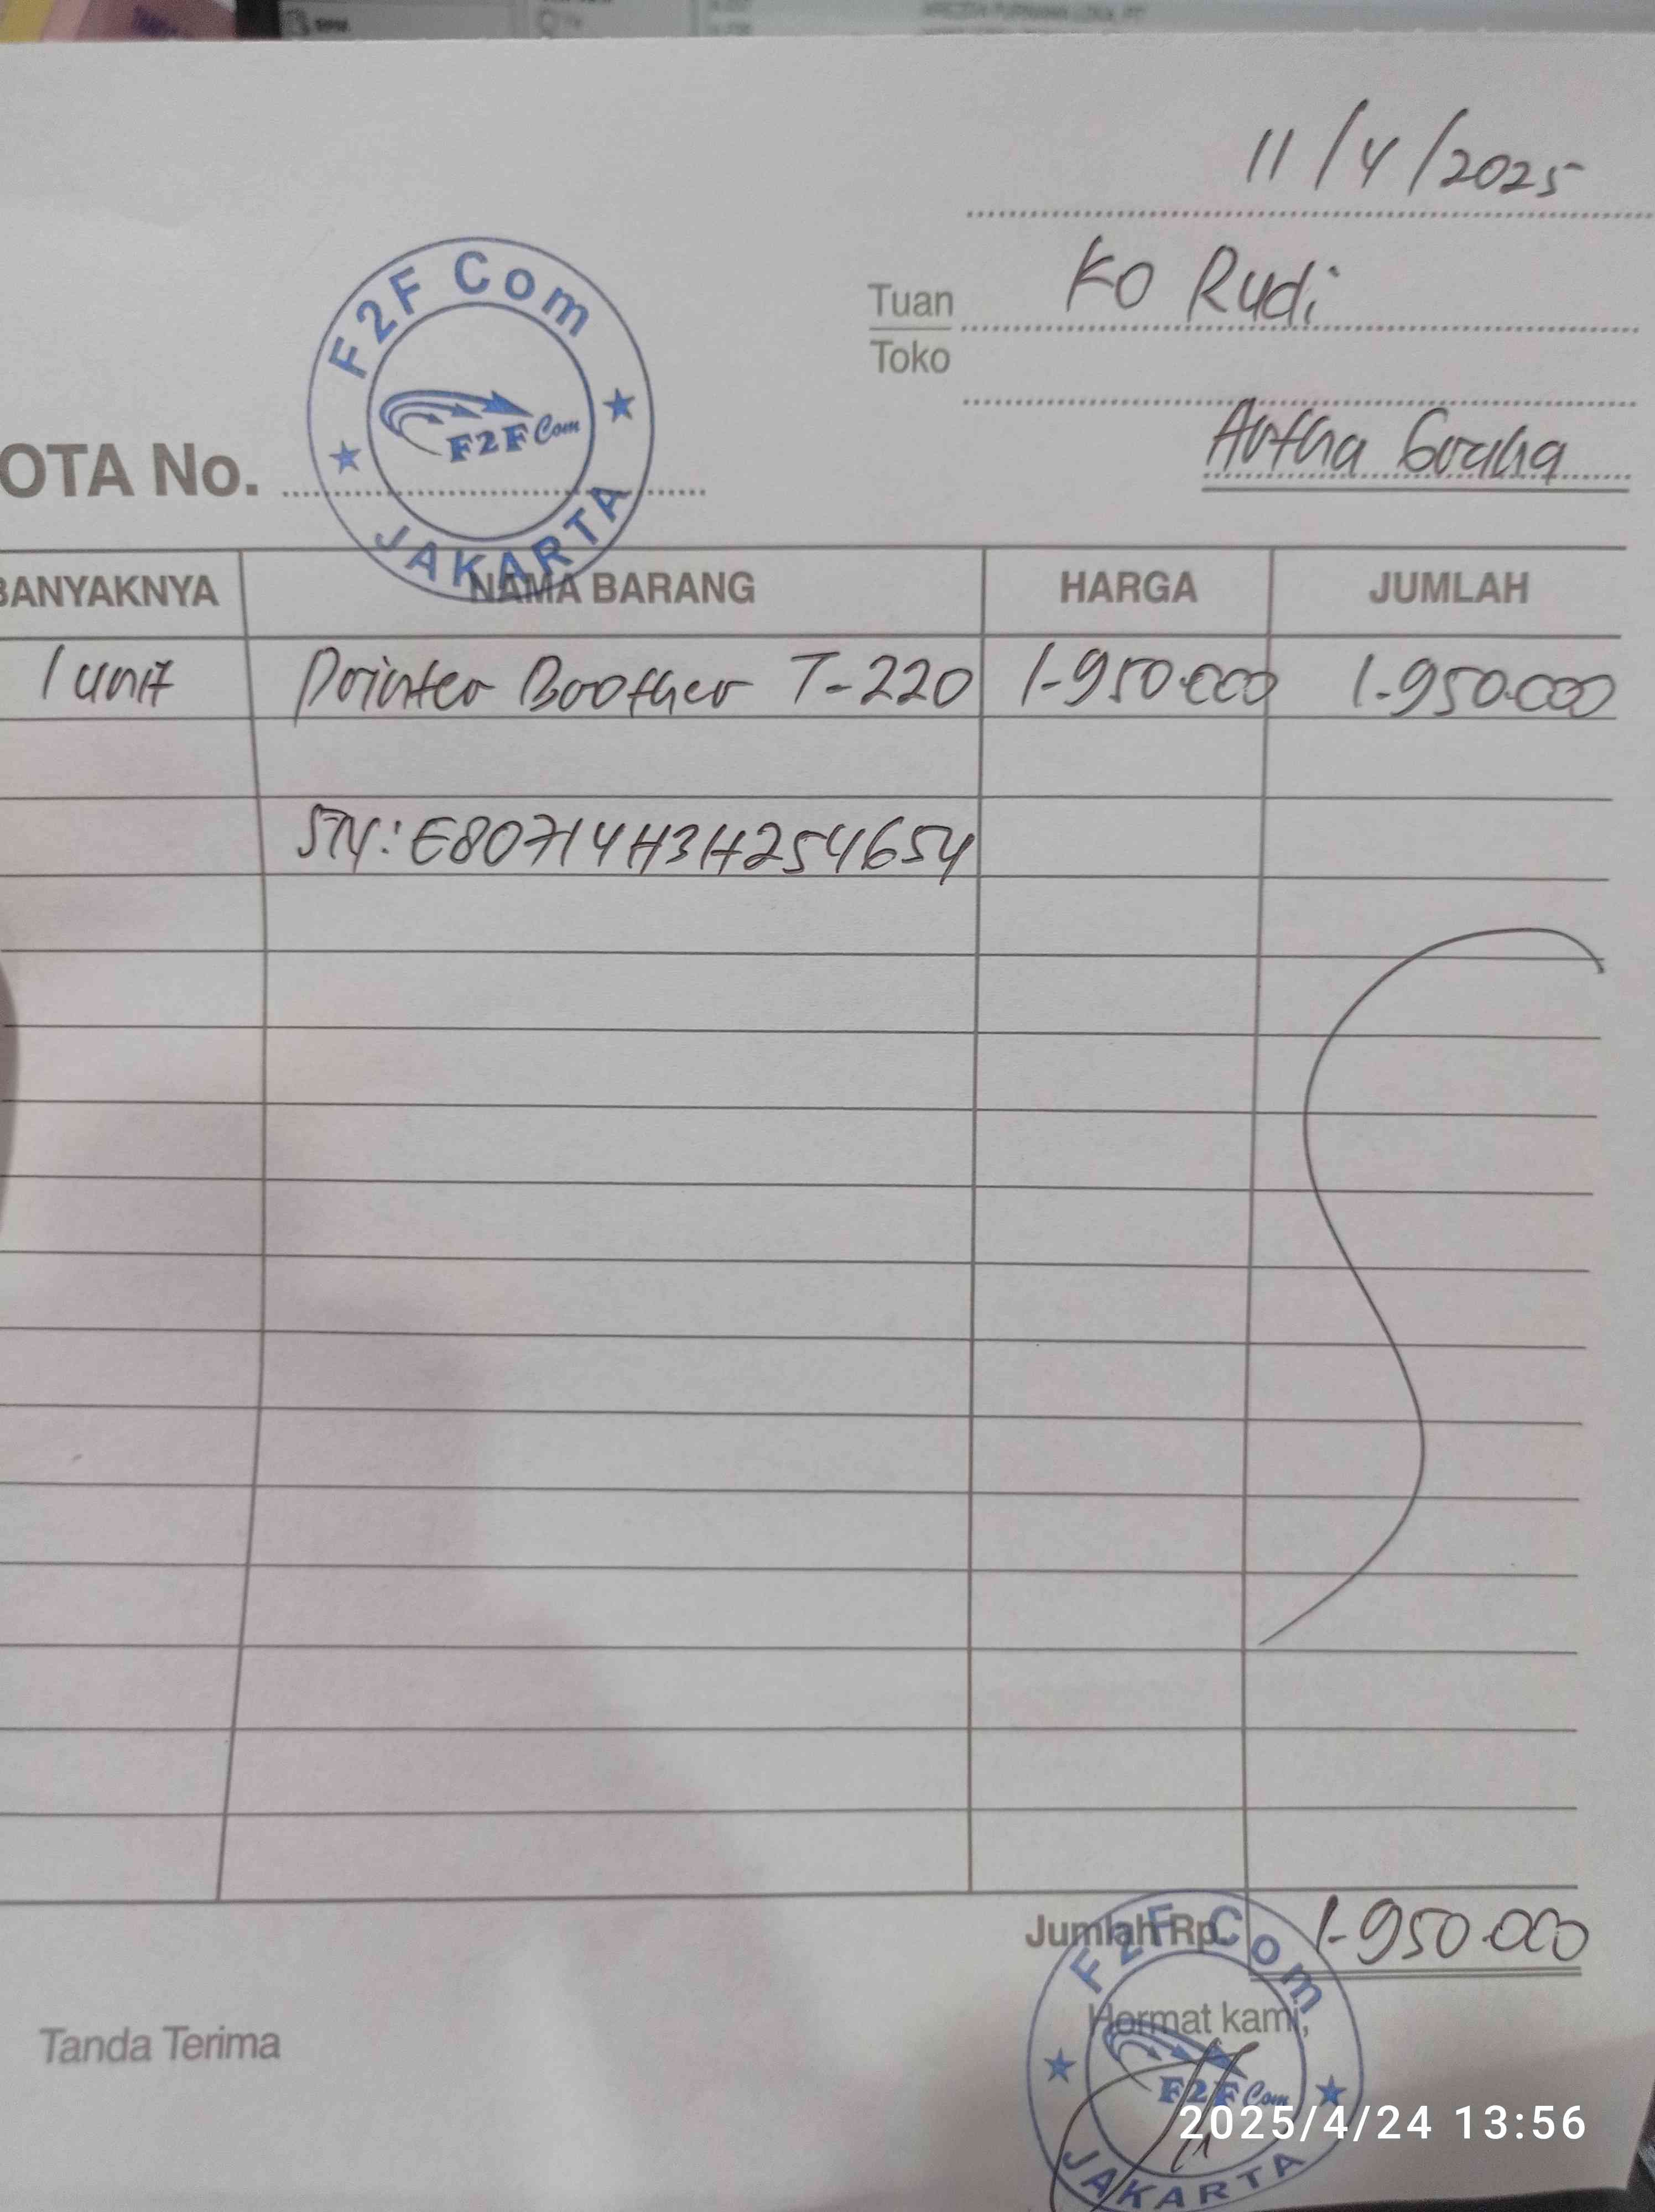 11/4/2025
Tuan Ko Rudi
Toko
Artha Graha
F2F Com
F2F Com
JAKARTA
OTA No.
BANYAKNYA NAMA BARANG HARGA JUMLAH
1 unit Printer Brother T-220 1.950.000 1.950.000
S/N: E80714H3H254654
Jumlah Rp. 1.950.000
Tanda Terima
Hormat kami,
F2F Com
F2F Com
JAKARTA
2025/4/24 13:56